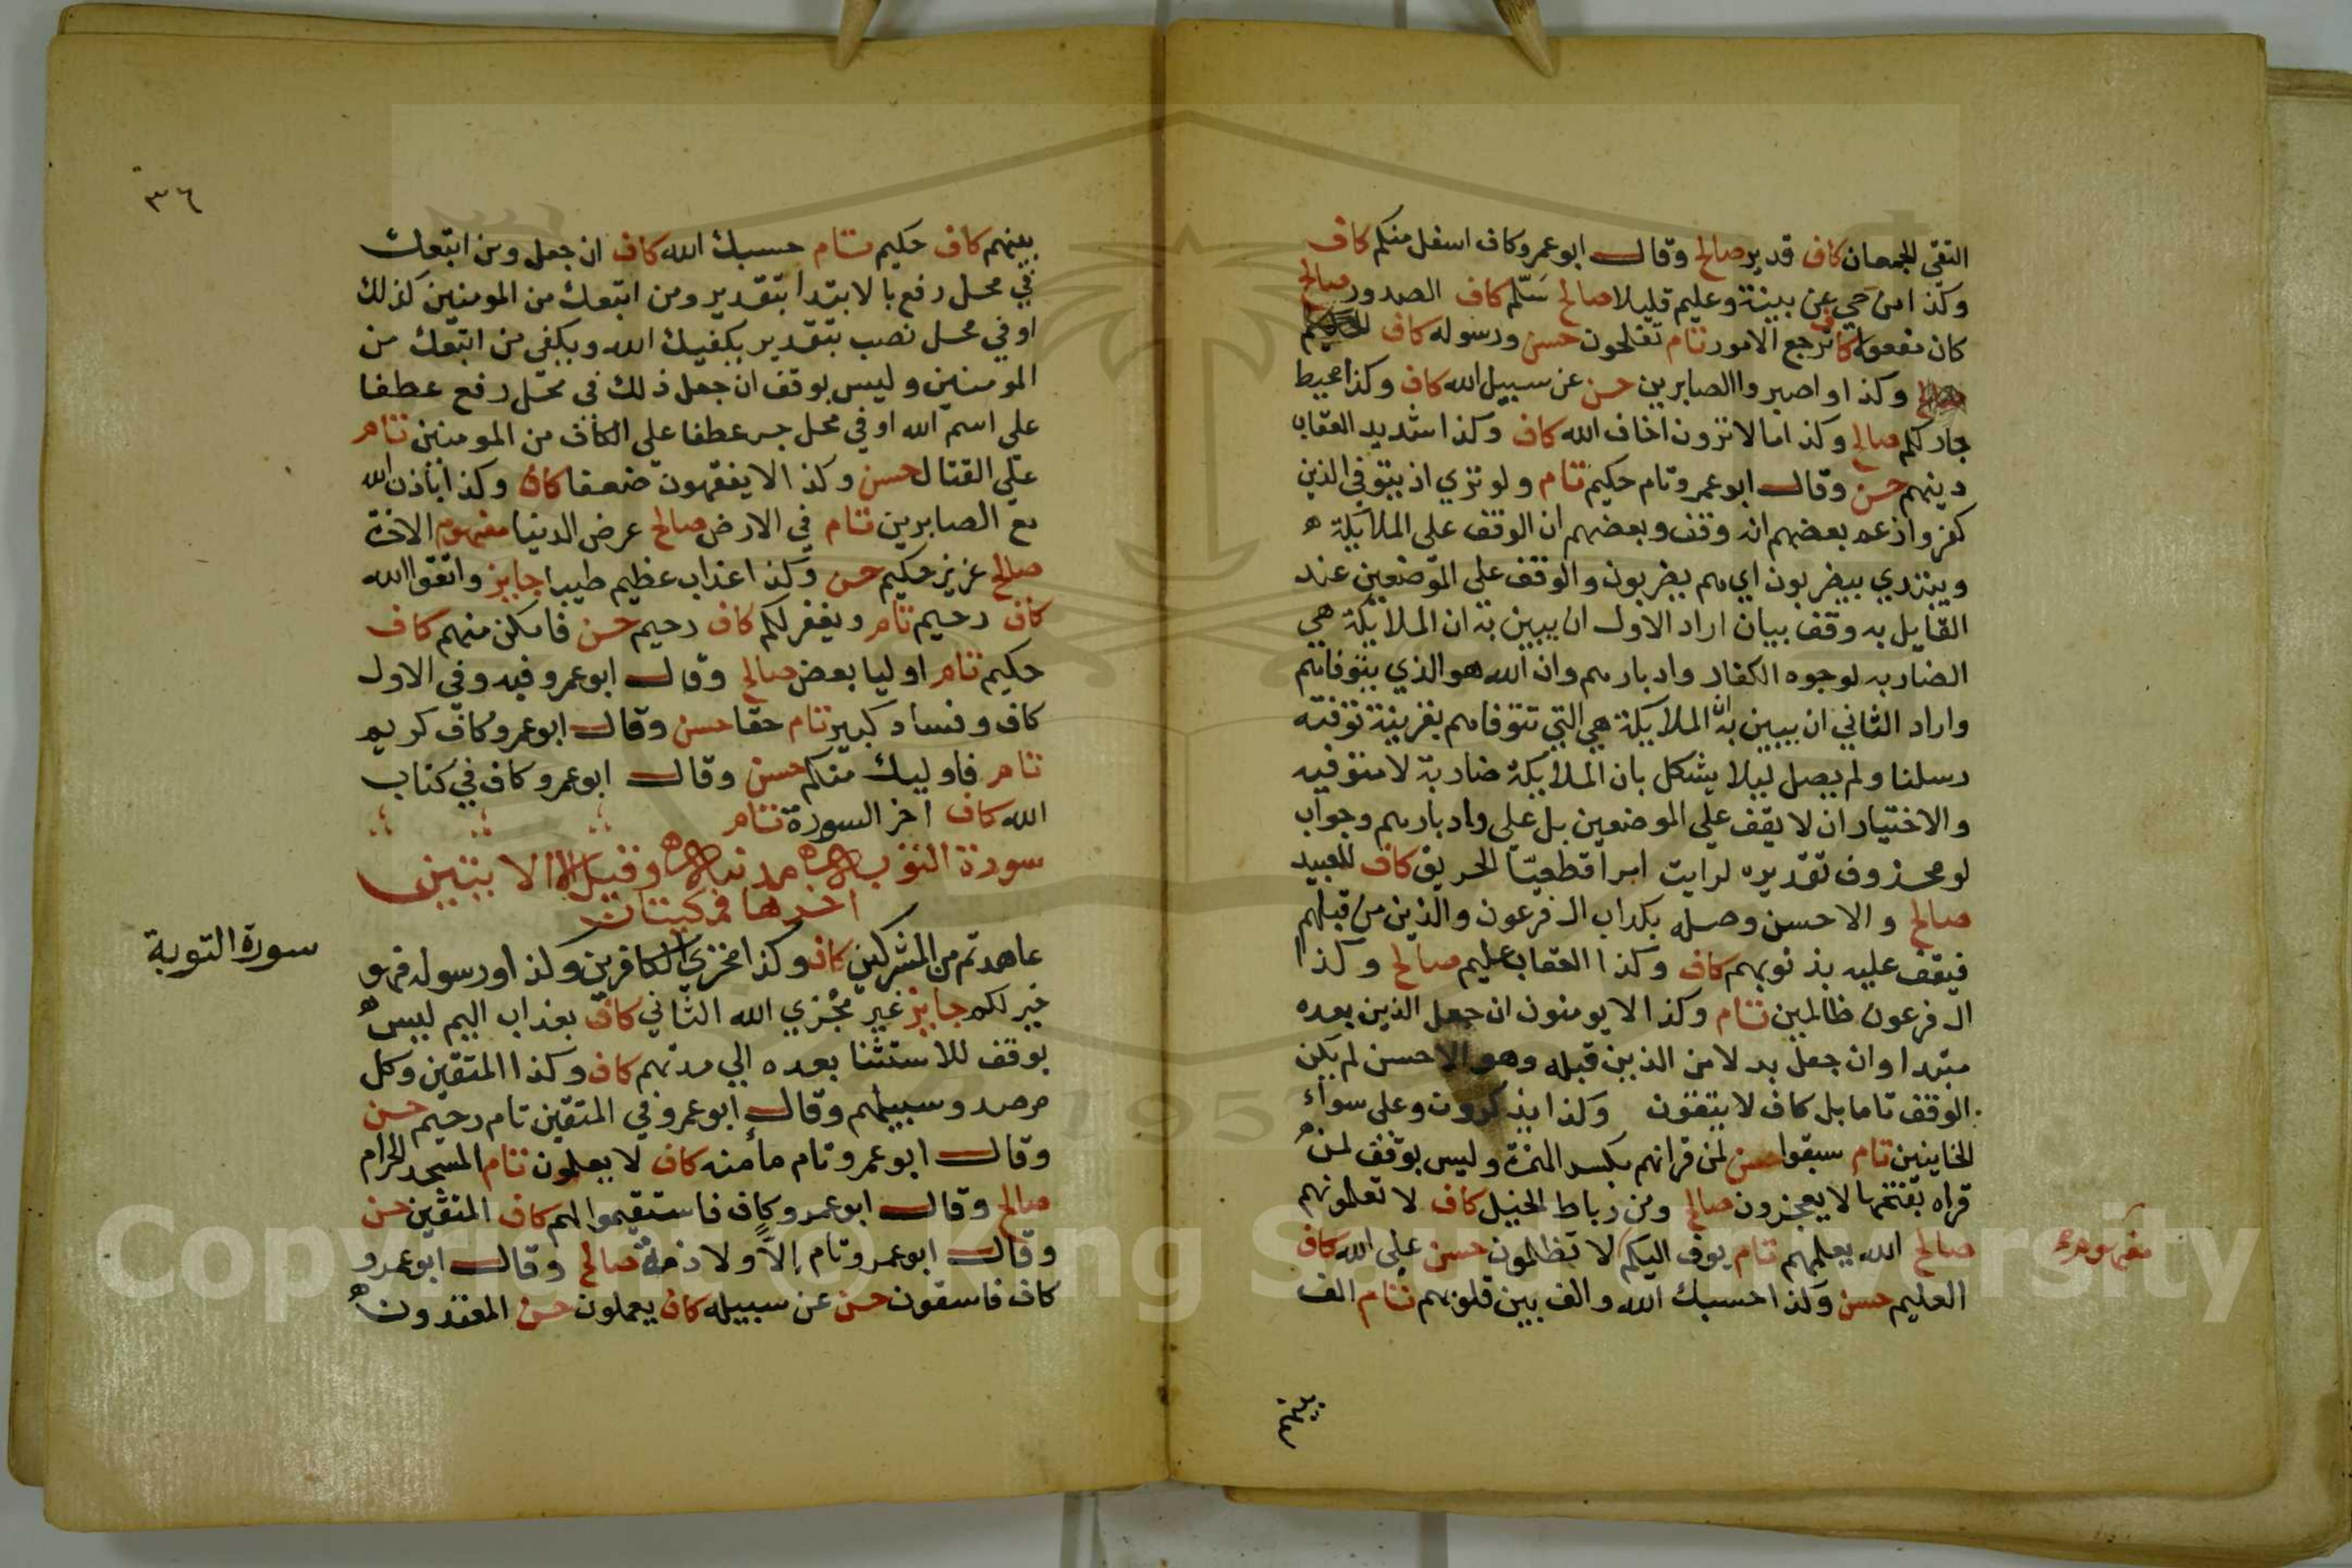 التقي الجمعان كاف قدير صالح وقال ابو عمرو كاف اسفل منكم كاف
وكذا من حي عن بينة وعليم قليلا صالح سلم كاف الصدور صالح
كان مفعولا كاف ترجع الامور تام تفلحون حسن ورسوله كاف
صالح وكذا واصبروا الصابرين حسن عن سبيل الله كاف وكذا محيط
جار لكم صالح وكذا ما لا ترون اخاف الله كاف وكذا شديد العقاب
دينهم حسن وقال ابو عمرو تام حكيم تام ولو تري اذ يتوفي الذين
كفروا زعم بعضهم انه وقف وبعضهم ان الوقف علي الملايكة ه
ويبتدي بيضربون اي هم يضربون والوقف علي الموضعين عند
القايل به وقف بيان اراد الاول ان يبين به ان الملايكة هي
الضاربه لوجوه الكفار وادبارهم وان الله هو الذي يتوفاهم
واراد الثاني ان يبين به ان الملايكة هي التي تتوفاهم بقرينة توفته
رسلنا ولم يصل ليلا يشكل بان الملايكة ضاربة لا متوفيه
والاختيار ان لا يقف علي الموضعين بل علي وادبارهم وجواب
لو محذوف تقديره لرايت امرا قطعيا الحريق كاف للعبيد
صالح والاحسن وصله بكداب ال فرعون والذين من قبلهم
فيقف عليه بذنوبهم كاف وكذا العقاب عليم صالح وكذا
ال فرعون ظالمين تام وكذا لا يومنون ان جعل الذين بعده
مبتدا وان جعل بدلا من الذين قبله وهو الاحسن لم يكن
الوقف تاما بل كاف لا يتقون وكذا يذكرون وعلي سواء
الخاينين تام سبقوا حسن لمن قرا انهم بكسر الهمزة وليس بوقف لمن
قراه بفتحها لا يعجزون صالح ومن رباط الخيل كاف لا تعلمونهم
صالح الله يعلمهم تام يوف اليكم لا تظلمون حسن علي الله كاف
مفهوم
العليم حسن وكذا حسبك الله والف بين قلوبهم تام الف
بينهم
٣٦
بينهم كاف حكيم تام حسبك الله كاف ان جعل ومن اتبعك
في محل رفع بالابتدا بتقدير ومن اتبعك من المومنين كذلك
او في محل نصب بتقدير يكفيك الله ويكفي من اتبعك من
المومنين وليس بوقف ان جعل ذلك في محل رفع عطفا
علي اسم الله او في محل جر عطفا علي الكاف من المومنين تام
علي القتال حسن وكذا لا يفقهون ضعفا كاف وكذا باذن الله
مع الصابرين تام في الارض صالح عرض الدنيا مفهوم الاخرة
صالح عزيز حكيم حسن وكذا عذاب عظيم طيبا جايز واتقوا الله
كاف رحيم تام ويغفر لكم كاف رحيم حسن فامكن منهم كاف
حكيم تام اوليا بعض صالح وقال ابو عمرو فيه وفي الاول
كاف وفساد كبير تام حقا حسن وقال ابو عمرو كاف كريم
تام فاوليك منكم حسن وقال ابو عمرو كاف في كتاب
الله كاف اخر السورة تام
سورة التوبه مدنيه وقيل الا الايتين
اخرها فمكيتان
سورة التوبة
عاهدتم من المشركين كاف وكذا مخزي الكافرين وكذا ورسوله فهو
خير لكم جايز غير معجزي الله الثاني كاف بعذاب اليم ليس
بوقف للاستثنا بعده الي مدتهم كاف وكذا المتقين وكل
مرصد وسبيلهم وقال ابو عمرو في المتقين تام رحيم حسن
وقال ابو عمرو تام مأمنه كاف لا يعلمون تام المسجد الحرام
صالح وقال ابو عمرو كاف فاستقيموا لهم كاف المتقين حسن
وقال ابو عمرو تام إلاًّ ولا ذمة صالح وقال ابو عمرو
كاف فاسقون حسن عن سبيله كاف يعملون حسن المعتدون
Copyright © King Saud University
1957